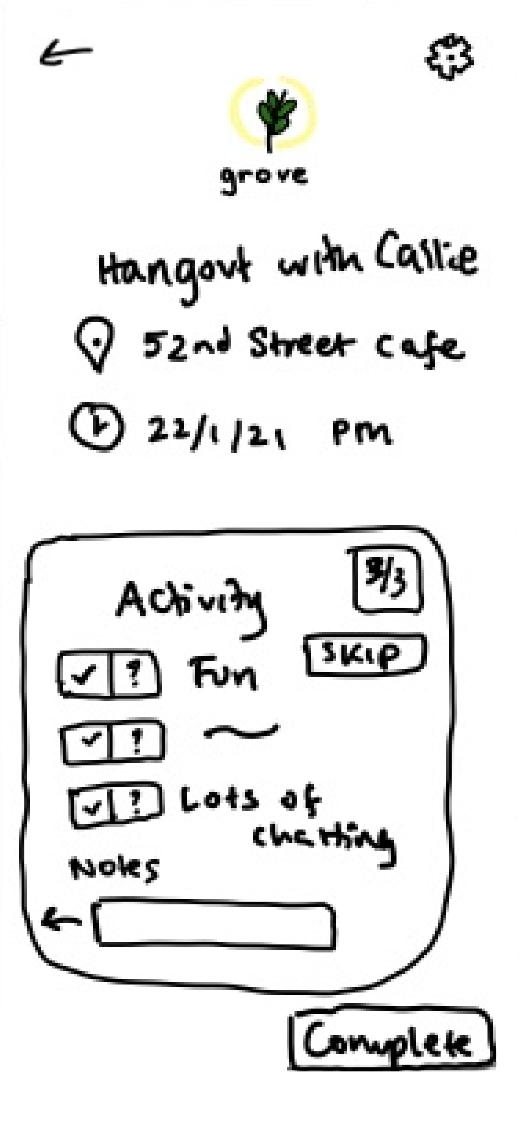 grove
Hangout with Callie
52nd Street Cafe
22/1/21 PM
3/3
Activity
SKIP
✓ ? Fun
✓ ? ~
✓ ? Lots of
chatting
Notes
Complete